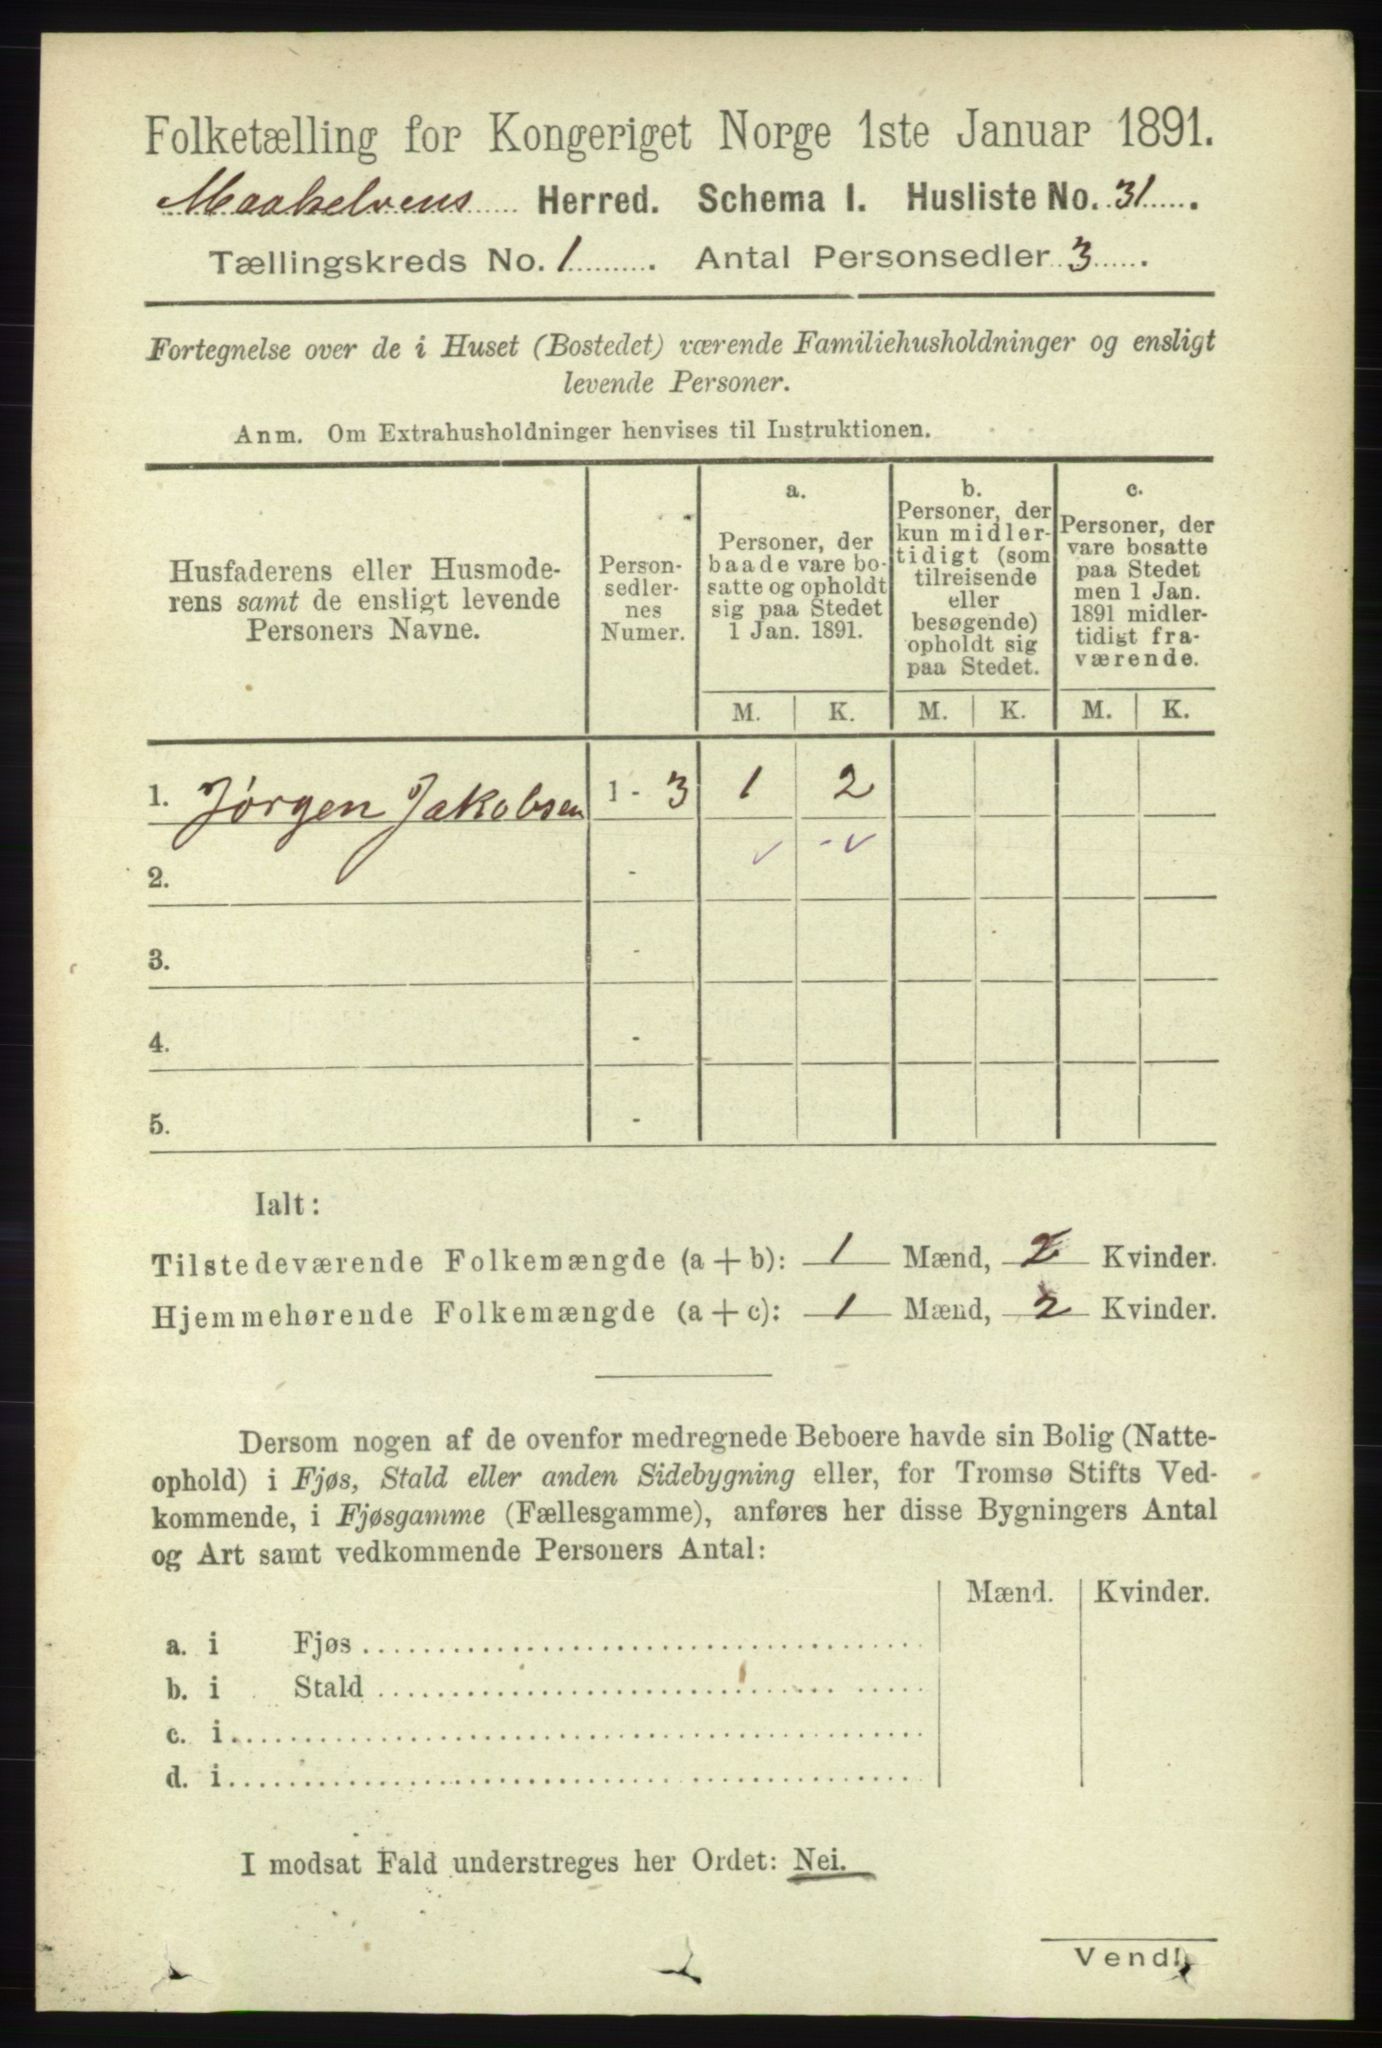 Folketælling for Kongeriget Norge 1ste Januar 1891.
Maakelvens Herred. Schema I. Husliste No. 31.
Tællingskreds No. 1. Antal Personsedler 3.
Fortegnelse over de i Huset (Bostedet) værende Familiehusholdninger og ensligt
levende Personer.
Anm. Om Extrahusholdninger henvises til Instruktionen.
Husfaderens eller Husmode-
rens samt de ensligt levende
Personers Navne.
Person-
sedler-
nes
Numer.
a.
Personer, der
baade vare bo-
satte og opholdt
sig paa Stedet
1 Jan. 1891.
b.
Personer, der
kun midler-
tidigt (som
tilreisende
eller
besøgende)
opholdt sig
paa Stedet.
c.
Personer, der
vare bosatte
paa Stedet
men 1 Jan.
1891 midler-
tidigt fra-
værende.
M. K. M. K. M. K.
1. Jørgen Jakobsen 1 - 3 1 2
2. -
3. -
4. -
5. -
Ialt:
Tilstedeværende Folkemængde (a + b): 1 Mænd, 2 Kvinder.
Hjemmehørende Folkemængde (a + c): 1 Mænd, 2 Kvinder.
Dersom nogen af de ovenfor medregnede Beboere havde sin Bolig (Natte-
ophold) i Fjøs, Stald eller anden Sidebygning eller, for Tromsø Stifts Ved-
kommende, i Fjøsgamme (Fællesgamme), anføres her disse Bygningers Antal
og Art samt vedkommende Personers Antal:
Mænd. Kvinder.
a. i Fjøs
b. i Stald
c. i
d. i
I modsat Fald understreges her Ordet: Nei.
Vend!